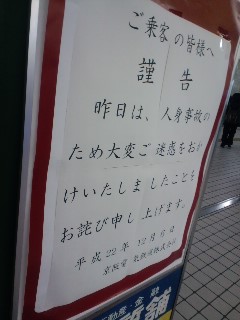 ご乗客の皆様へ
謹告
昨日は、人身事故の
ため大変ご迷惑をおか
けいたしましたことを
お詫び申し上げます。
平成22年12月
株式会社
金融
舗